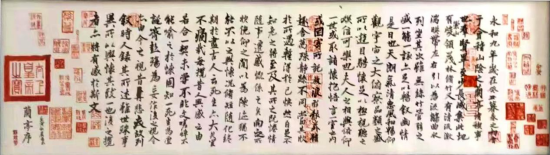 永和九年歲在癸丑暮春之初會
于會稽山陰之蘭亭脩稧事
也羣賢畢至少長咸集此地
有崇領茂林脩竹又有清流激
湍暎帶左右引以為流觴曲水
列坐其次雖無絲竹管弦之
盛一觴一詠亦足以暢敘幽情
是日也天朗氣清惠風和暢仰
觀宇宙之大俯察品類之盛
所以遊目騁懷足以極視聽之
娛信可樂也夫人之相與俯仰
一世或取諸懷抱悟言一室之內
或因寄所託放浪形骸之外雖
趣舍萬殊靜躁不同當其欣
於所遇蹔得於己怏然自足不
知老之將至及其所之既惓情
隨事遷感慨係之矣向之所
欣俛仰之間以為陳迹猶不
能不以之興懷況脩短隨化終
期於盡古人云死生亦大矣豈
不痛哉每攬昔人興感之由
若合一契未嘗不臨文嗟悼不
能喻之於懷固知一死生為虛
誕齊彭殤為妄作後之視今
亦由今之視昔悲夫故列
敘時人錄其所述雖世殊事
異所以興懷其致一也後之攬
者亦將有感於斯文
蘭亭序